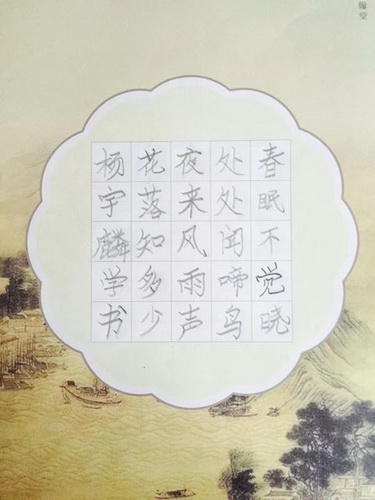 春眠不觉晓
处处闻啼鸟
夜来风雨声
花落知多少
杨宇麟学书